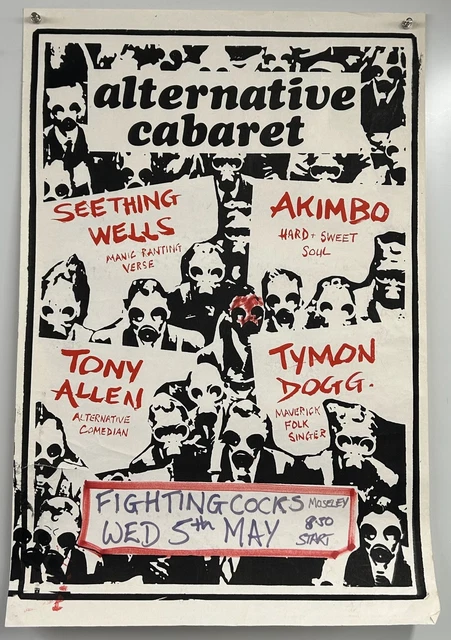 alternative
cabaret
SEETHING
WELLS
MANIC RANTING
VERSE
AKIMBO
HARD + SWEET
SOUL
TONY
ALLEN
ALTERNATIVE
COMEDIAN
TYMON
DOGG.
MAVERICK
FOLK
SINGER
FIGHTING COCKS MOSELEY
WED 5th MAY 8.30
START